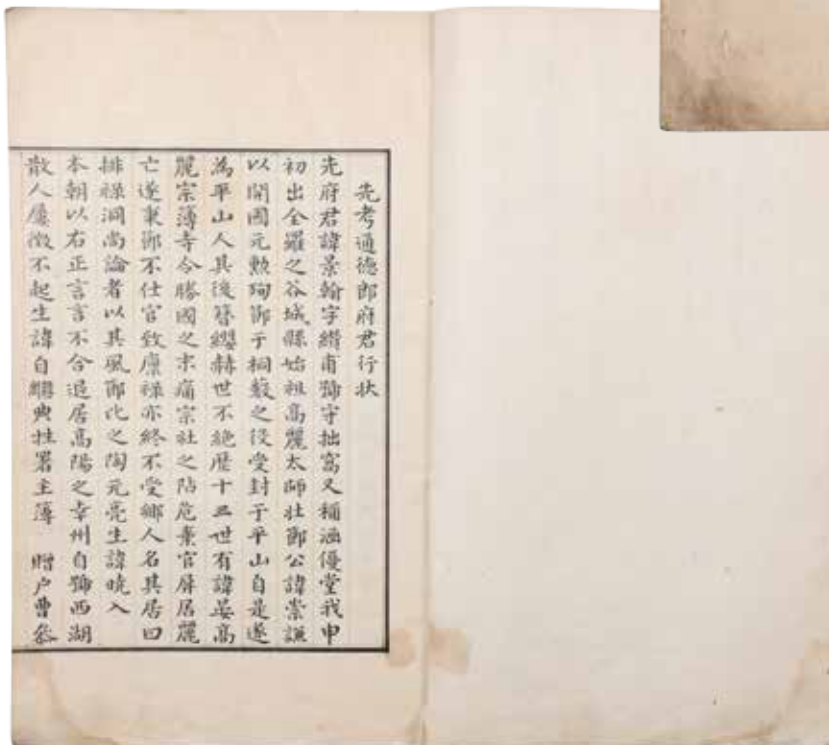 先考通德郎府君行狀
先府君諱景翰字纘甫號守拙窩又稱涵優堂我申
初出全羅之谷城縣始祖高麗太師壯節公諱崇謙
以開國元勲殉節于桐藪之役受封于平山自是遂
為平山人其後簪纓赫世不絶歷十三世有諱晏高
麗宗簿寺令勝國之末痛宗社之阽危棄官屏居麗
亡遂秉節不仕官致廩祿亦終不受鄉人名其居曰
排祿洞尚論者以其風節比之陶元亮生諱曉入
本朝以右正言言不合退居高陽之幸州自號西湖
散人屢徵不起生諱自繼典牲署主簿　贈户曹叅